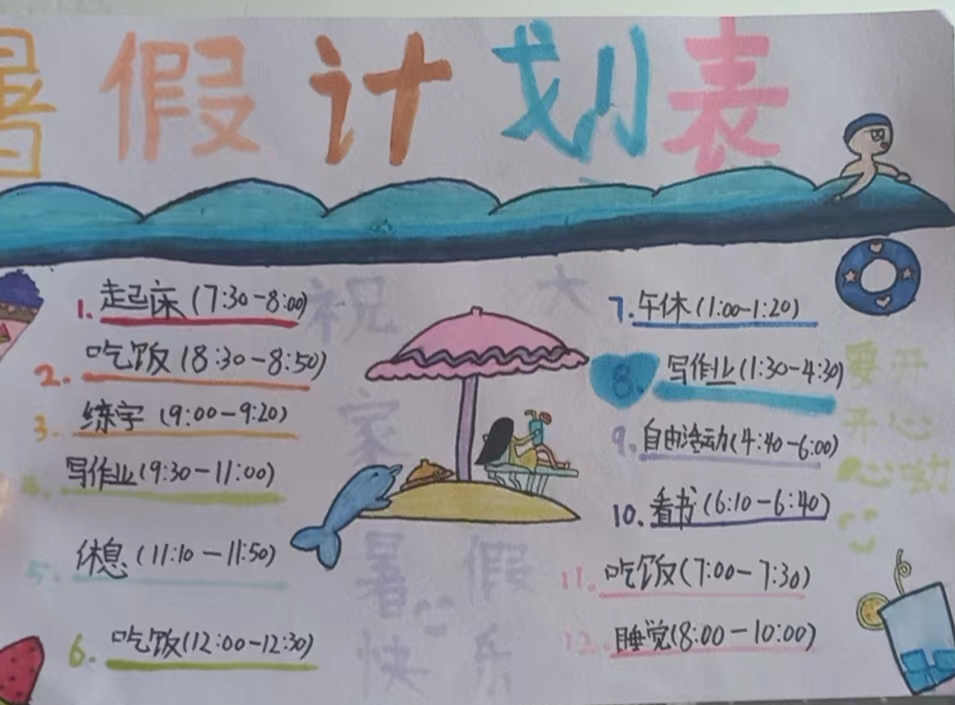 暑假计划表
1. 起床(7:30-8:00)
2. 吃饭(8:30-8:50)
3. 练字(9:00-9:20)
4. 写作业(9:30-11:00)
5. 休息(11:10-11:50)
6. 吃饭(12:00-12:30)
祝大
家
暑假
快乐
7. 午休(1:00-1:20)
8. 写作业(1:30-4:30)
9. 自由活动(4:40-6:00)
10. 看书(6:10-6:40)
11. 吃饭(7:00-7:30)
12. 睡觉(8:00-10:00)
要开
开心
心呦